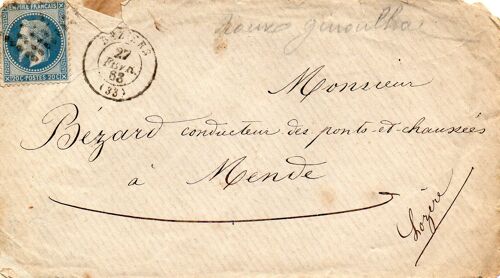 EMPIRE FRANÇAIS
20C POSTES 20C
27
FEVR.
68
(33)
Monsieur
Bézard conducteur des ponts-et-chaussées
à Mende
Lozère